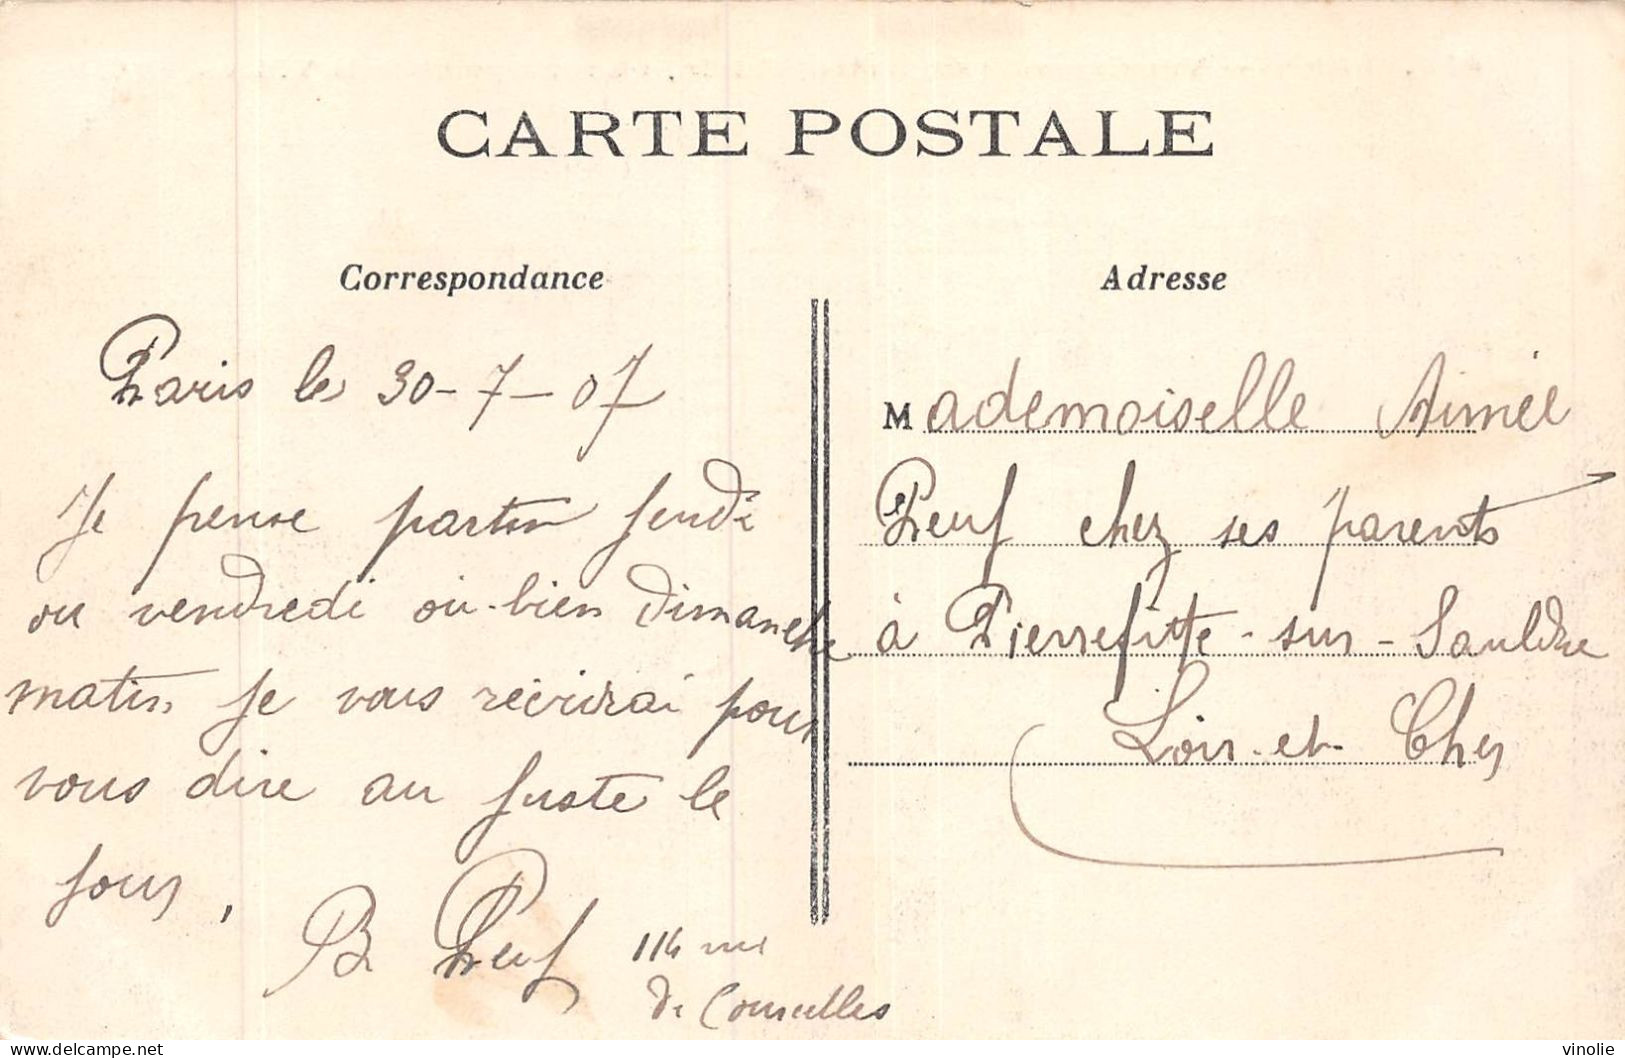 CARTE POSTALE
Correspondance
Paris le 30-7-07
Je pense partir jeudi
ou vendredi ou bien dimanche
matin je vous récrirai pour
vous dire au juste le
jour,
B Peuf 114 rue
de Courcelles
Adresse
Mademoiselle Aimée
Peuf chez ses parents
à Pierrefitte-sur-Sauldre
Loir-et-Cher
delcampe.net
vinolie